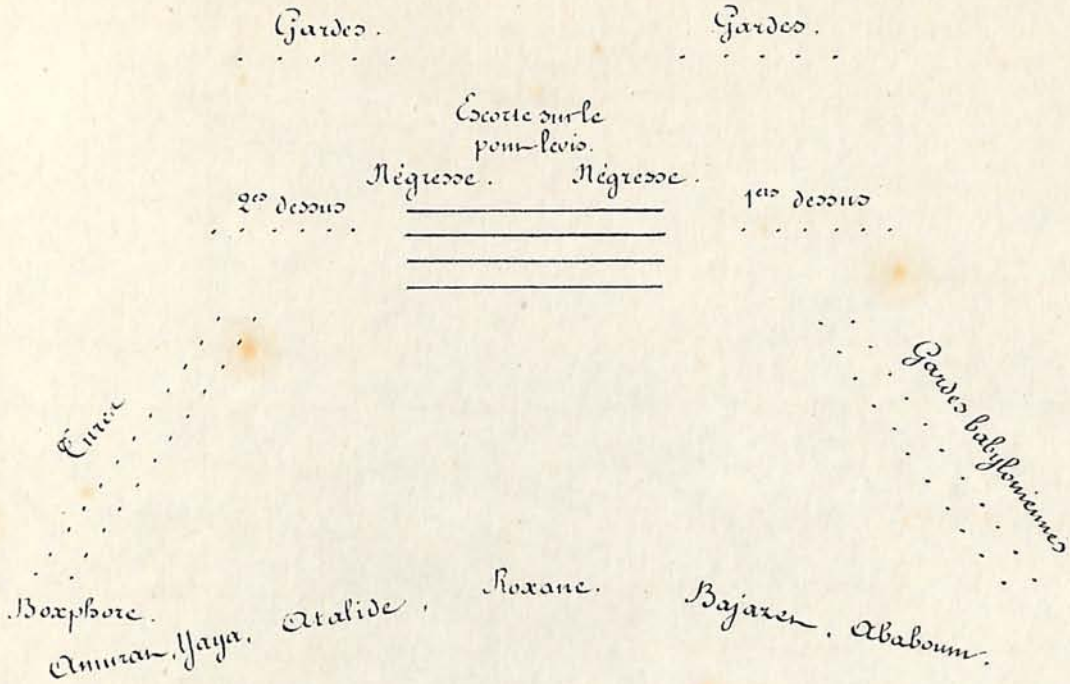 Gardes.
Gardes.
Escorte sur le
pont-levis.
Négresse.
Négresse.
2es dessus
1ers dessus
Turcs
Gardes babyloniennes
Boxphore.
Amurat, Yaya, Atalide,
Roxane.
Bajazet, Ababoum.